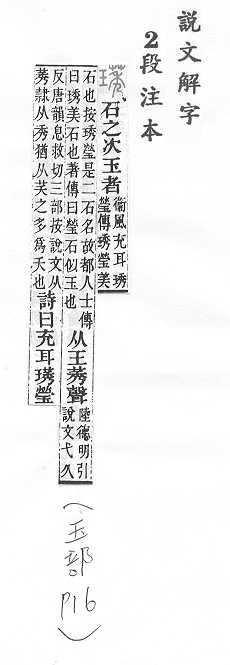 說文解字
2段注本
璓石之次玉者
衞風充耳琇
瑩傳琇瑩美
石也按琇瑩是二石名故都人士傳
曰琇美石也著傳曰瑩石似玉也
从王莠聲
陸德明引
說文弋久
反唐韻息救切三部按說文从
莠隸从秀猶从芺之多爲夭也
詩曰充耳璓瑩
(玉部 P16)